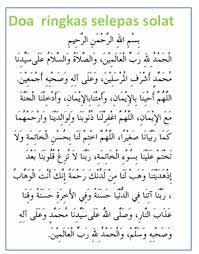 Doa ringkas selepas solat
بِسْمِ اللهِ الرَّحْمٰنِ الرَّحِيْمِ
الْحَمْدُ لِلّٰهِ رَبِّ الْعَالَمِيْنَ، وَالصَّلَاةُ وَالسَّلَامُ عَلَى سَيِّدِنَا
مُحَمَّدٍ أَشْرَفِ الْمُرْسَلِيْنَ، وَعَلَى آلِهِ وَصَحْبِهِ أَجْمَعِيْنَ.
اللّٰهُمَّ أَحْيِنَا بِالْإِيْمَانِ، وَأَمِتْنَا بِالْإِيْمَانِ، وَأَدْخِلْنَا الْجَنَّةَ
مَعَ الْإِيْمَانِ. اللّٰهُمَّ اغْفِرْلَنَا ذُنُوْبَنَا وَلِوَالِدِيْنَا وَارْحَمْهُمَا
كَمَا رَبَّيَانَا صِغَارًا، اللّٰهُمَّ اخْتِمْ لَنَا بِحُسْنِ الْخَاتِمَةِ وَلَا
تَخْتِمْ عَلَيْنَا بِسُوْءِ الْخَاتِمَةِ، رَبَّنَا لَا تُزِغْ قُلُوْبَنَا بَعْدَ
إِذْ هَدَيْتَنَا وَهَبْ لَنَا مِنْ لَدُنْكَ رَحْمَةً إِنَّكَ أَنْتَ الْوَهَّابُ
، رَبَّنَا آتِنَا فِي الدُّنْيَا حَسَنَةً وَفِي الْآخِرَةِ حَسَنَةً وَقِنَا
عَذَابَ النَّارِ، وَصَلَّى اللهُ عَلَى سَيِّدِنَا مُحَمَّدٍ وَعَلَى آلِهِ
وَصَحْبِهِ وَسَلَّمَ، وَالْحَمْدُ لِلّٰهِ رَبِّ الْعَالَمِيْنَ.